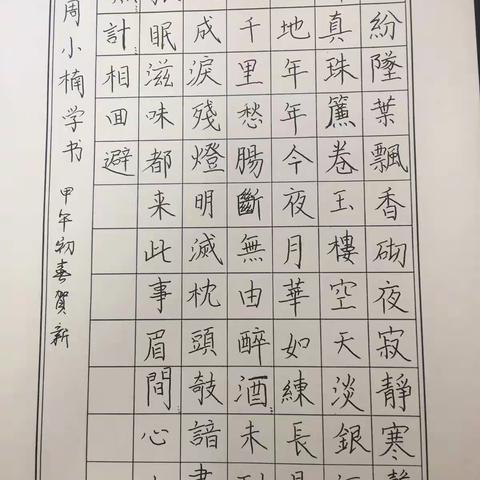 紛墜葉飄香砌夜寂靜寒
真珠簾卷玉樓空天淡銀
地年年今夜月華如練長
千里愁腸斷無由醉酒未
成淚殘燈明滅枕頭敧諳
眠滋味都来此事眉間心
計相回避
周小楠学书 甲午初春賀新